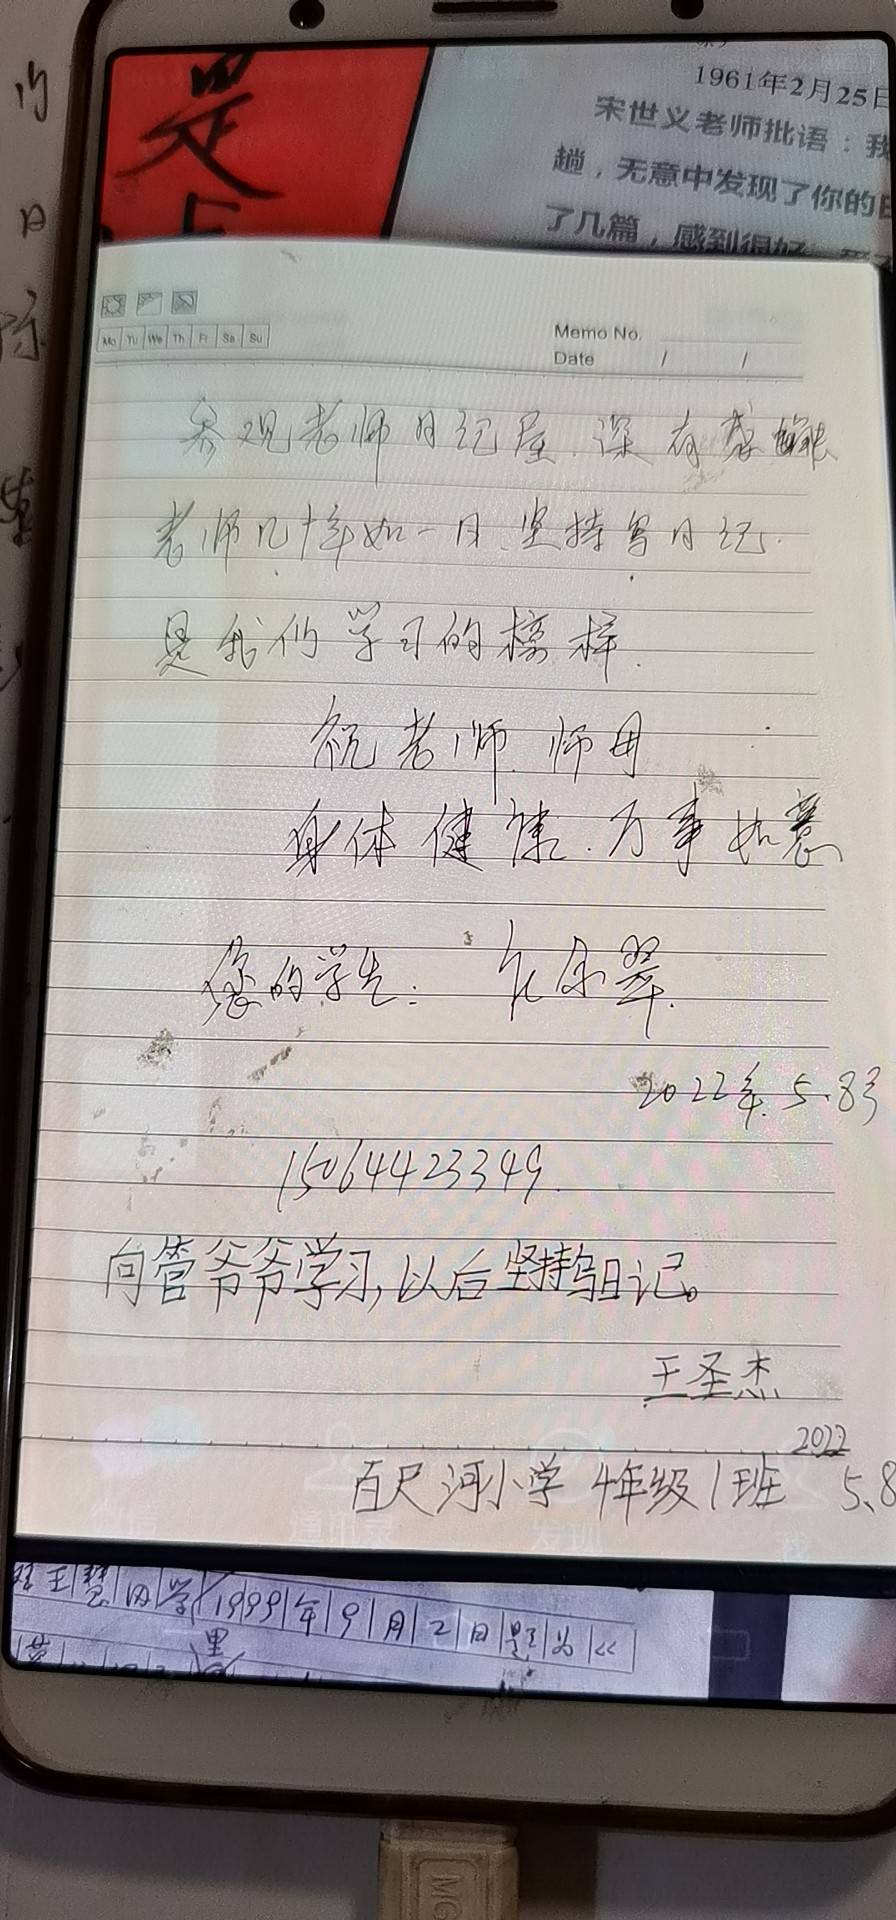 是
1961年2月25日
宋世义老师批语：我
趟，无意中发现了你的日
了几篇，感到很好
Mo Tu We Th Fr Sa Su
Memo No.
Date / /
参观老师日记屋.深有感触
老师几十年如一日.坚持写日记.
是我们学习的榜样.
祝老师.师母
身体健康.万事如意
您的学生:
2022年.5.8号
15064423349.
向管爷爷学习,以后坚持写日记。
王圣杰
2022
百尺河小学 4年级1班 5.8
王慧同学1999年9月2日题为《